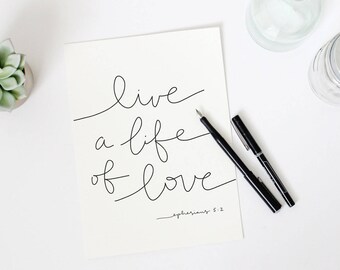 live
a life
of love
ephesians 5:2